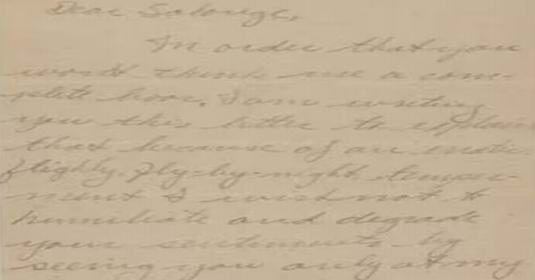 Dear Salough,
In order that you
won't think me a com-
plete boor, I am writing
you this letter to explain
that because of an erotic
flighty, fly-by-night temper-
ment I wish not to
humiliate and degrade
your sentiments by
seeing you only at my